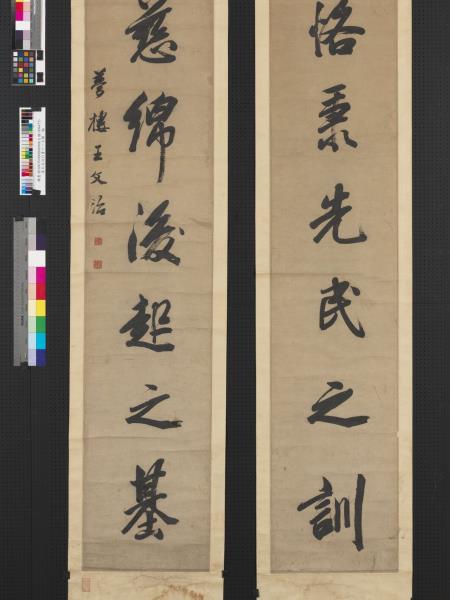 恪先民之訓
慈綿後起之基
夢樓王文治